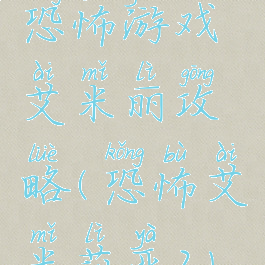 恐怖游戏
ài mǐ lì gōng
艾米丽攻
lüè kǒng bù ài
略(恐怖艾
mǐ lì yà
米莉亚